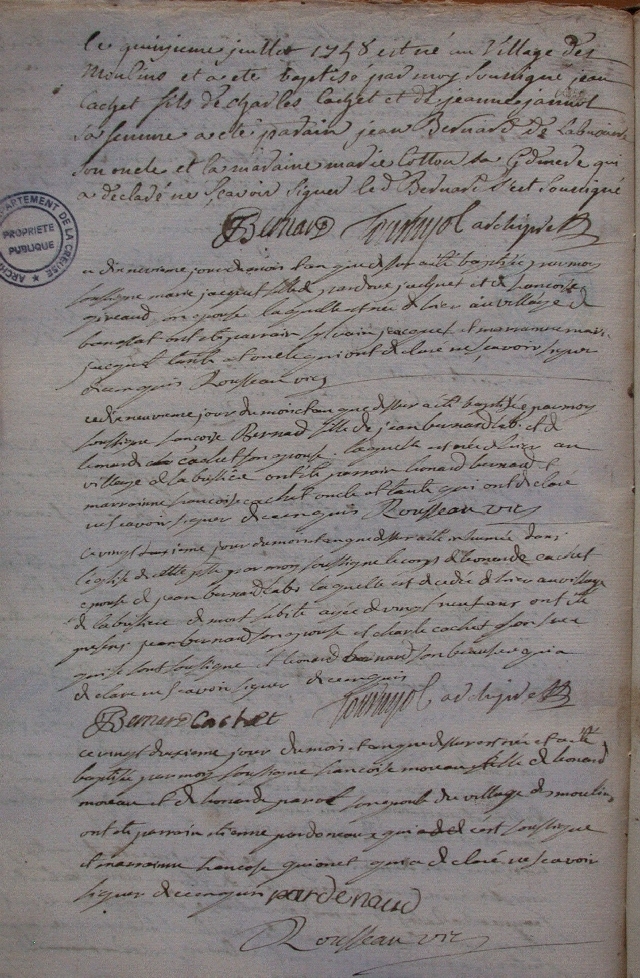 Le quinzieme juillet 1748 est né au Village des
Moulins et a eté baptisé par moy soussigné jean
Cachet fils de charles Cachet et de jeanne jannot
sa femme a eté parain jean Bernard de Labussiere
son oncle et la maraine marie Cotton sa qui
a declaré ne sçavoir signer led Bernard s'est soussigné
Bernard Tournyol archiprêtre
ce dix neuvieme jour du mois et an que dessus a eté baptisée par moy
soussigné marie jacquet fille de jacquet et de francoise
giraud son epouse laquelle est née d'hier au village de
ont eté parrain sylvain jacquet et marrainne marie
jacquet tante et oncle qui ont declaré ne sçavoir signer
de ce enquis Rousseau vic
ce dix neuvieme jour du mois et an que dessus a eté baptisée par moy
soussigné francoise Bernard fille de jean bernard lab. et de
leonarde cachet son epouse laquelle est née d'hier au
village de la bussiere ont eté parrain leonard bernard et
marrainne francoise cachet oncle et tante qui ont declaré
ne sçavoir signer de ce enquis Rousseau vic
ce vingt deuxieme jour du mois et an que dessus a eté inhumée dans
l'eglise de cette par moy soussigné le corps de leonarde cachet
epouse de jean bernard lab. laquelle est decedée d'hier au village
de la bussiere de mort subite agée de vingt neuf ans ont eté
presens jean bernard son epoux et charle cachet son
qui se sont soussigné et leonard bernard son beaufrere qui a
declaré ne sçavoir signer de ce enquis
Tournyol archiprêtre
Bernard Cachet
ce vingt deuxieme jour du mois et an que dessus est née et a eté
baptisée par moy soussigné francoise moreau fille de leonard
moreau et de leonarde parot son epouse du village des moulins
ont eté parrain etienne qui s'est soussigné
et marrainne francoise qui a declaré ne sçavoir
signer de ce enquis pardenaud
Rousseau vic
DEPARTEMENT DE LA CREUSE
PROPRIETE
PUBLIQUE